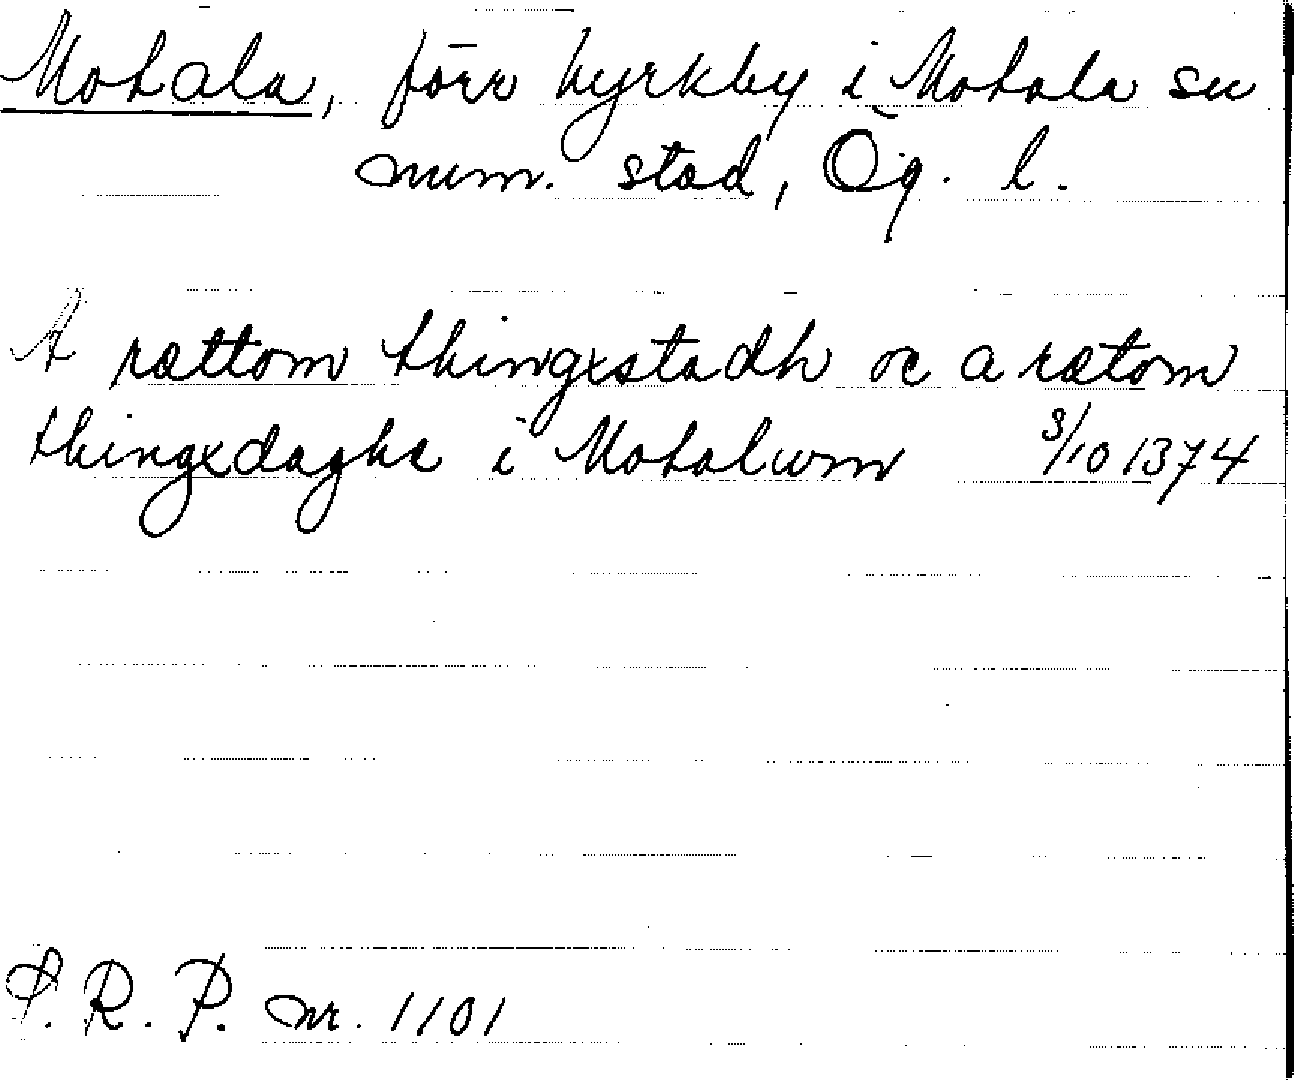 Motala, förr kyrkby i Motala sn
num. stad, Ög. l.
A rættom thingxstadh oc a rætom
thingxdaghe i Motalum 3/10 1374
S. R. P. nr. 1101